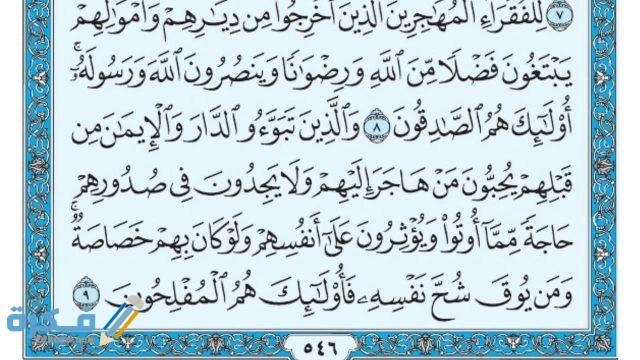 ٧ لِلْفُقَرَآءِ ٱلْمُهَٰجِرِينَ ٱلَّذِينَ أُخْرِجُوا۟ مِن دِيَٰرِهِمْ وَأَمْوَٰلِهِمْ
يَبْتَغُونَ فَضْلًا مِّنَ ٱللَّهِ وَرِضْوَٰنًا وَيَنصُرُونَ ٱللَّهَ وَرَسُولَهُۥٓ ۚ
أُو۟لَٰٓئِكَ هُمُ ٱلصَّٰدِقُونَ ٨ وَٱلَّذِينَ تَبَوَّءُو ٱلدَّارَ وَٱلْإِيمَٰنَ مِن
قَبْلِهِمْ يُحِبُّونَ مَنْ هَاجَرَ إِلَيْهِمْ وَلَا يَجِدُونَ فِى صُدُورِهِمْ
حَاجَةً مِّمَّآ أُوتُوا۟ وَيُؤْثِرُونَ عَلَىٰٓ أَنفُسِهِمْ وَلَوْ كَانَ بِهِمْ خَصَاصَةٌ ۚ
وَمَن يُوقَ شُحَّ نَفْسِهِۦ فَأُو۟لَٰٓئِكَ هُمُ ٱلْمُفْلِحُونَ ٩
فكرة
٥٤٦